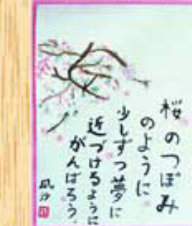 桜のつぼみ
のように
少しずつ夢に
近づけるように
がんばろう。